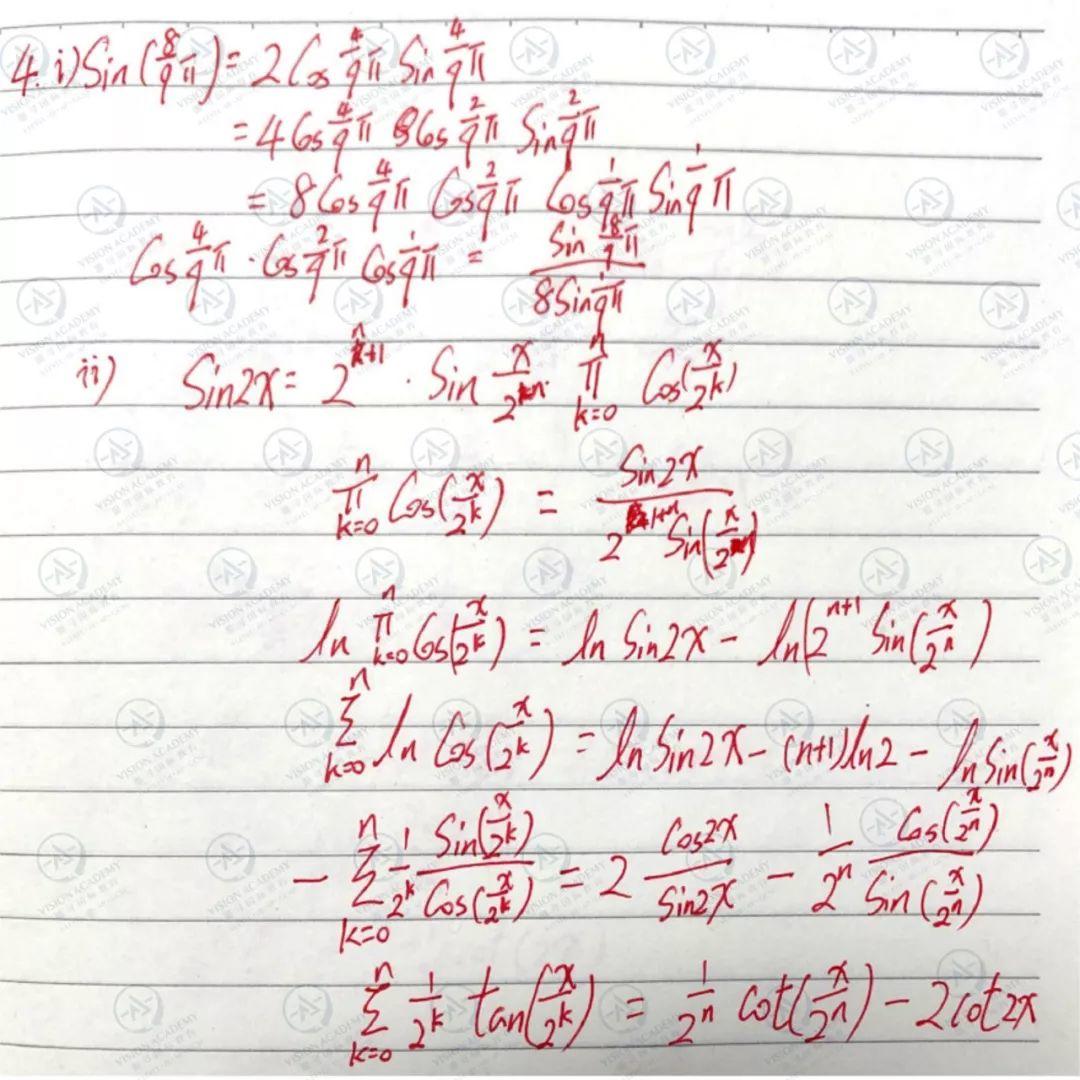 4. i) Sin(8/9 π) = 2 Cos 4/9 π Sin 4/9 π
= 4 Cos 4/9 π Cos 2/9 π Sin 2/9 π
= 8 Cos 4/9 π Cos 2/9 π Cos 1/9 π Sin 1/9 π
Cos 4/9 π · Cos 2/9 π Cos 1/9 π = (Sin 8/9 π)/(8 Sin 1/9 π)
ii) Sin2x = 2^(n+1) · Sin x/2^n ∏_{k=0}^{n} Cos(x/2^k)
∏_{k=0}^{n} Cos(x/2^k) = (Sin2x)/(2^(1+n) Sin(x/2^n))
ln ∏_{k=0}^{n} Cos(x/2^k) = ln Sin2x - ln(2^(n+1) Sin(x/2^n)
∑_{k=0}^{n} ln Cos(x/2^k) = ln Sin2x - (n+1)ln2 - ln Sin(x/2^n)
- ∑_{k=0}^{n} 1/2^k (Sin(x/2^k))/(Cos(x/2^k)) = 2 (Cos2x)/(Sin2x) - 1/2^n (Cos(x/2^n))/(Sin(x/2^n))
∑_{k=0}^{n} 1/2^k tan(x/2^k) = 1/2^n cot(x/2^n) - 2cot2x
VISION ACADEMY